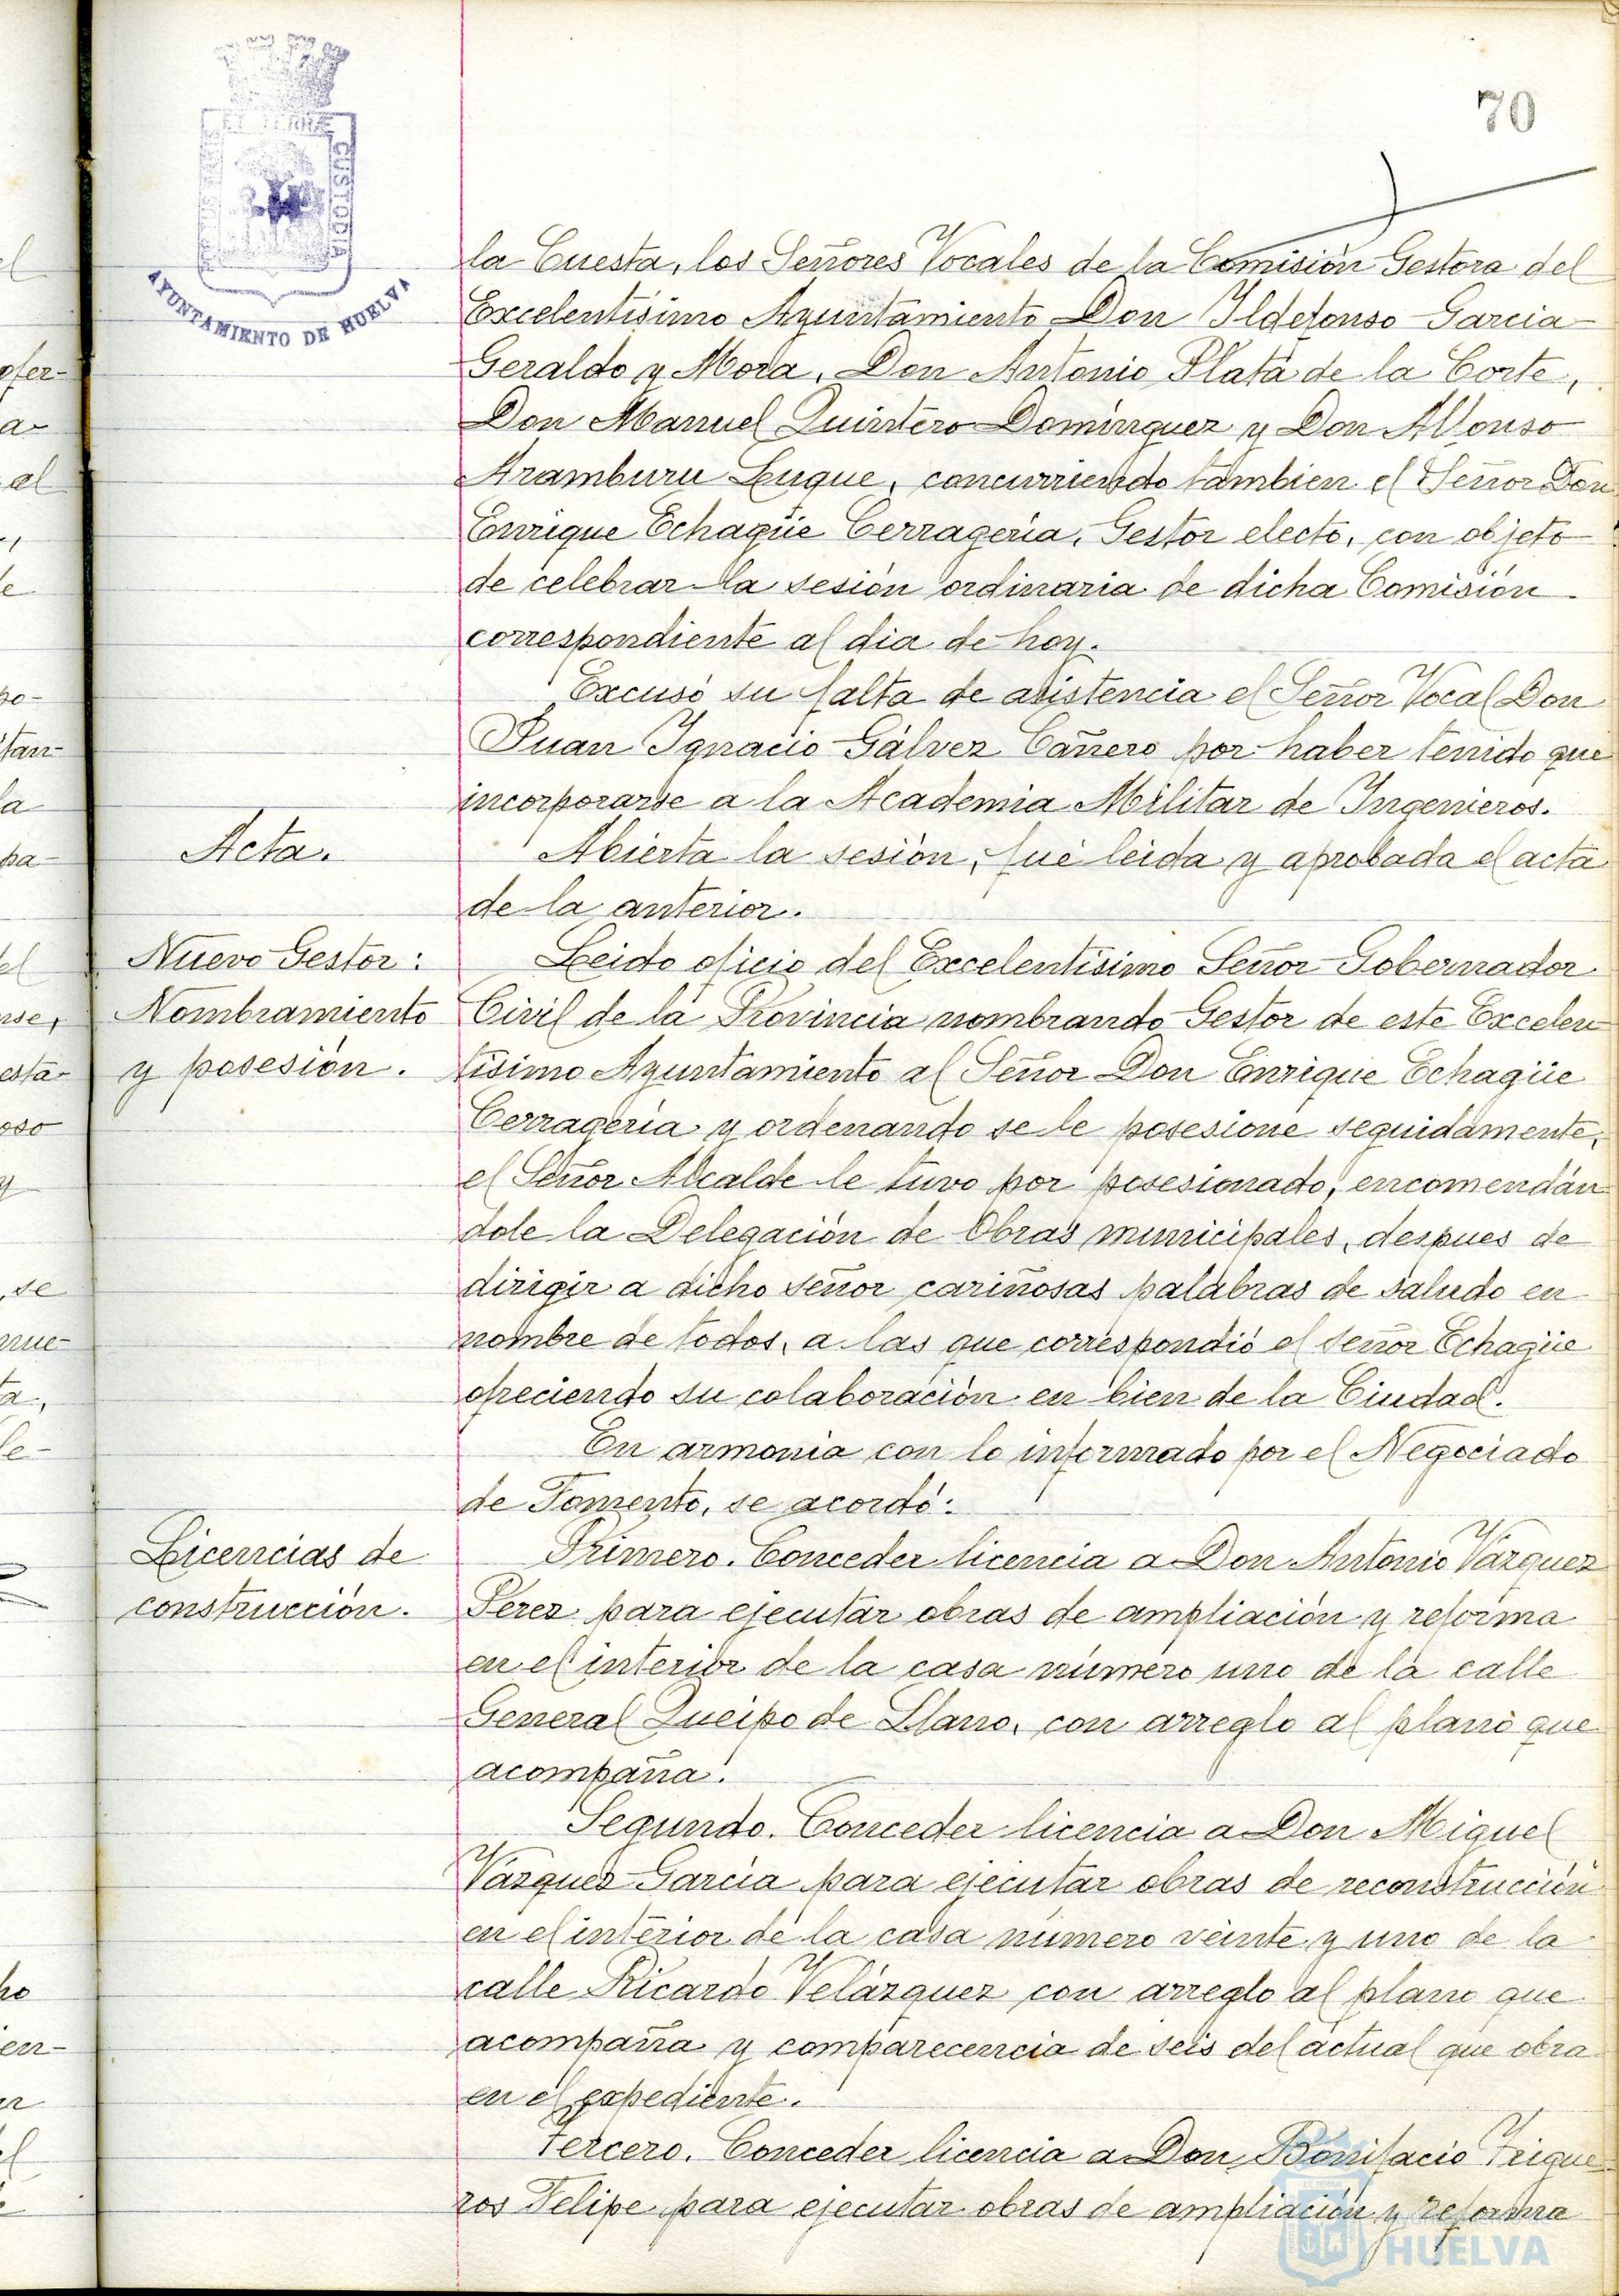 70
ET TERRÆ
CUSTODIA
AYUNTAMIENTO DE HUELVA
la Cuesta, los Señores Vocales de la Comisión Gestora del
Excelentísimo Ayuntamiento Don Ildefonso Garcia-
Geraldo y Mora, Don Antonio Plata de la Corte,
Don Manuel Quintero Domínguez y Don Alfonso
Aramburu Luque, concurriendo tambien el Señor Don
Enrique Echagüe Cerragería, Gestor electo, con objeto
de celebrar la sesión ordinaria de dicha Comisión
correspondiente al dia de hoy.
Excusó su falta de asistencia el Señor Vocal Don
Juan Ignacio Gálvez Cañero por haber tenido que
incorporarse a la Academia Militar de Ingenieros.
Acta.
Abierta la sesión, fué leida y aprobada el acta
de la anterior.
Nuevo Gestor:
Nombramiento
y posesión.
Leido oficio del Excelentísimo Señor Gobernador
Civil de la Provincia nombrando Gestor de este Excelen
tísimo Ayuntamiento al Señor Don Enrique Echagüe
Cerragería y ordenando se le posesione seguidamente,
el Señor Alcalde le tuvo por posesionado, encomendán
dole la Delegación de Obras municipales, despues de
dirigir a dicho señor cariñosas palabras de saludo en
nombre de todos, a las que correspondió el señor Echagüe
ofreciendo su colaboración en bien de la Ciudad.
En armonia con lo informado por el Negociado
de Fomento, se acordó:
Licencias de
construcción.
Primero. Conceder licencia a Don Antonio Vázquez
Pérez para ejecutar obras de ampliación y reforma
en el interior de la casa número uno de la calle
General Queipo de Llano, con arreglo al plano que
acompaña.
Segundo. Conceder licencia a Don Miguel
Vázquez García para ejecutar obras de reconstrucción
en el interior de la casa número veinte y uno de la
calle Ricardo Velázquez con arreglo al plano que
acompaña y comparecencia de seis del actual que obra
en el expediente.
Tercero. Conceder licencia a Don Bonifacio Trigue
ros Felipe para ejecutar obras de ampliación y reforma
HUELVA